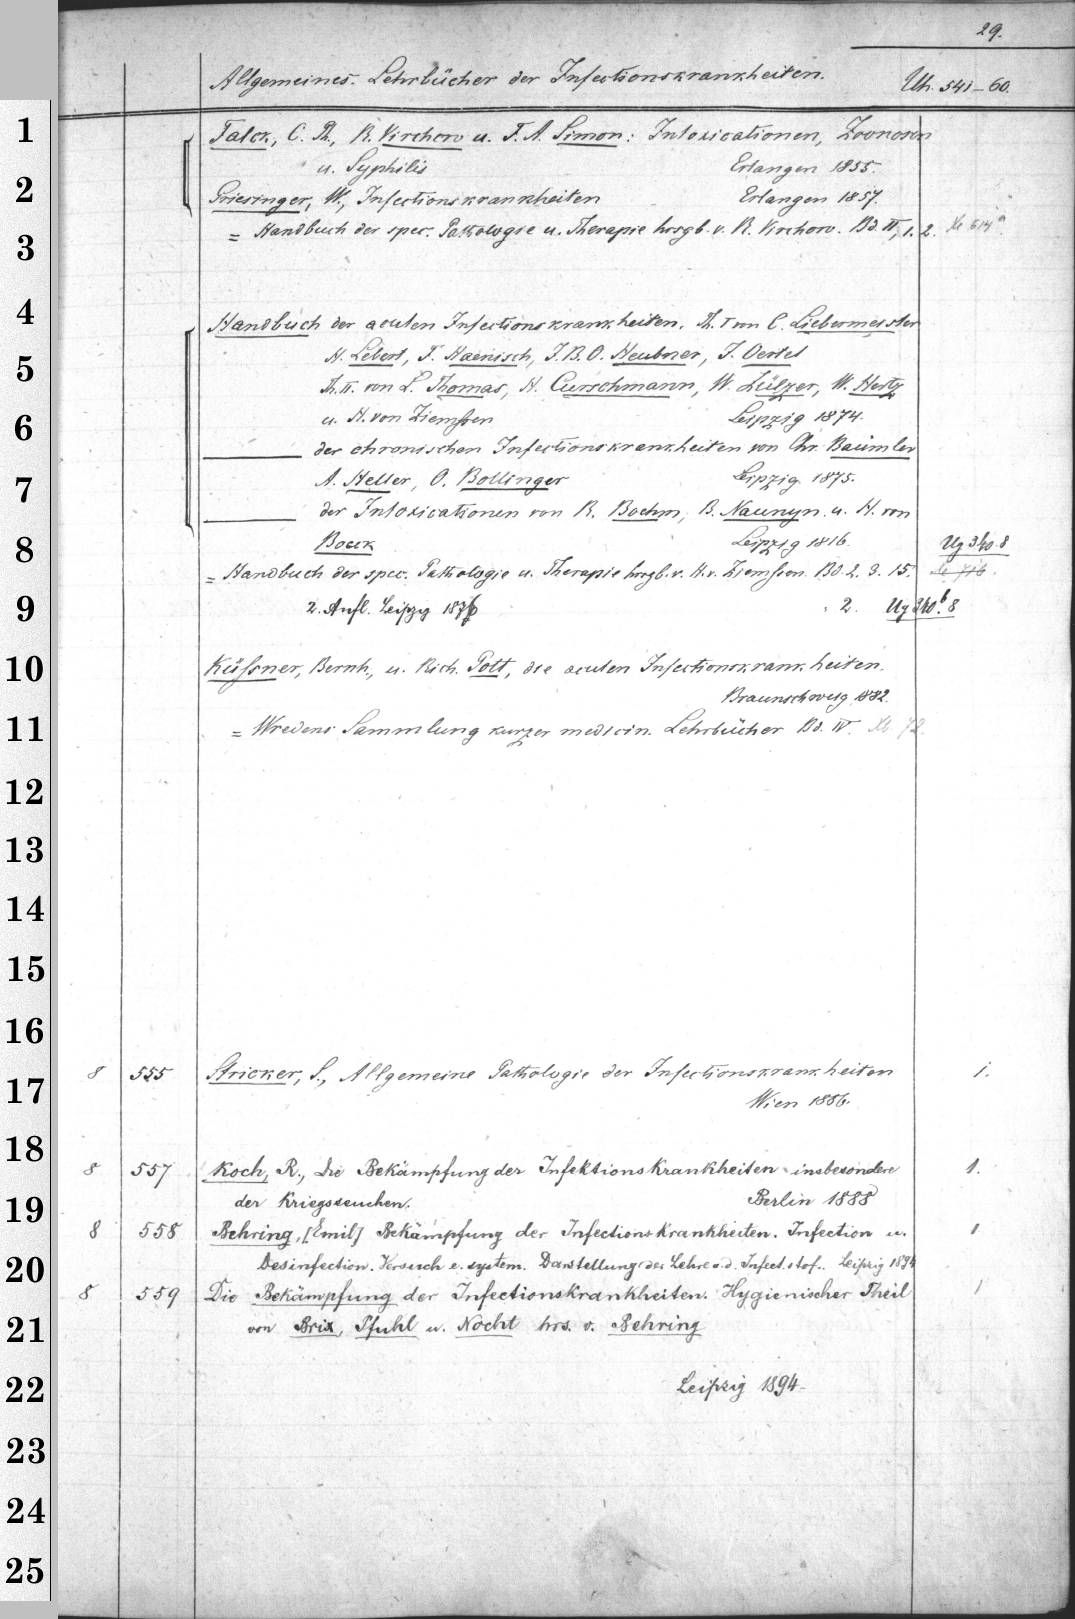 29.
Allgemeines. Lehrbücher der Infectionskrankheiten. Uh. 541–60.
1
Falck, C. Th., R. Virchow u. F. A. Simon: Intoxicationen, Zoonosen
u. Syphilis Erlangen 1855.
2
Griesinger, W., Infectionskrankheiten Erlangen 1857.
3
= Handbuch der spec. Pathologie u. Therapie hrsgb. v. R. Virchow. Bd. II, 1. 2.
4
Handbuch der acuten Infectionskrankheiten. Th. I von C. Liebermeister
5
H. Lebert, F. Haenisch, J. B. O. Heubner, J. Oertel
Th. II. von L. Thomas, H. Curschmann, W. Zülzer, W. Hertz
6
u. H. von Ziemssen Leipzig 1874.
——— der chronischen Infectionskrankheiten von Chr. Bäumler
7
A. Heller, O. Bollinger Leipzig 1875.
——— der Intoxicationen von R. Boehm, B. Naunyn u. H. von
8
Boeck Leipzig 1816. Ug 340. 8
= Handbuch der spec. Pathologie u. Therapie hrsgb. v. H. v. Ziemssen. Bd. 2. 3. 15.
9
2. Aufl. Leipzig 1876 2. Ug 340b. 8
10
Küssner, Bernh., u. Rich. Pott, die acuten Infectionskrankheiten.
Braunschweig 1882.
11
= Wredens Sammlung kurzer medicin. Lehrbücher Bd. IV. 72.
12
13
14
15
16
17
8 555 Stricker, S., Allgemeine Pathologie der Infectionskrankheiten 1.
Wien 1886.
18
8 557 Koch, R., Die Bekämpfung der Infektionskrankheiten insbesondere 1.
19
der Kriegsseuchen. Berlin 1888
8 558 Behring, [Emil] Bekämpfung der Infectionskrankheiten. Infection u. 1
20
Desinfection. Versuch e. system. Darstellung der Lehre v. d. Infect.stof.. Leipzig 1894
8 559 Die Bekämpfung der Infectionskrankheiten. Hygienischer Theil 1
21
von Brix, Pfuhl u. Nocht hrs. v. Behring
22
Leipzig 1894
23
24
25